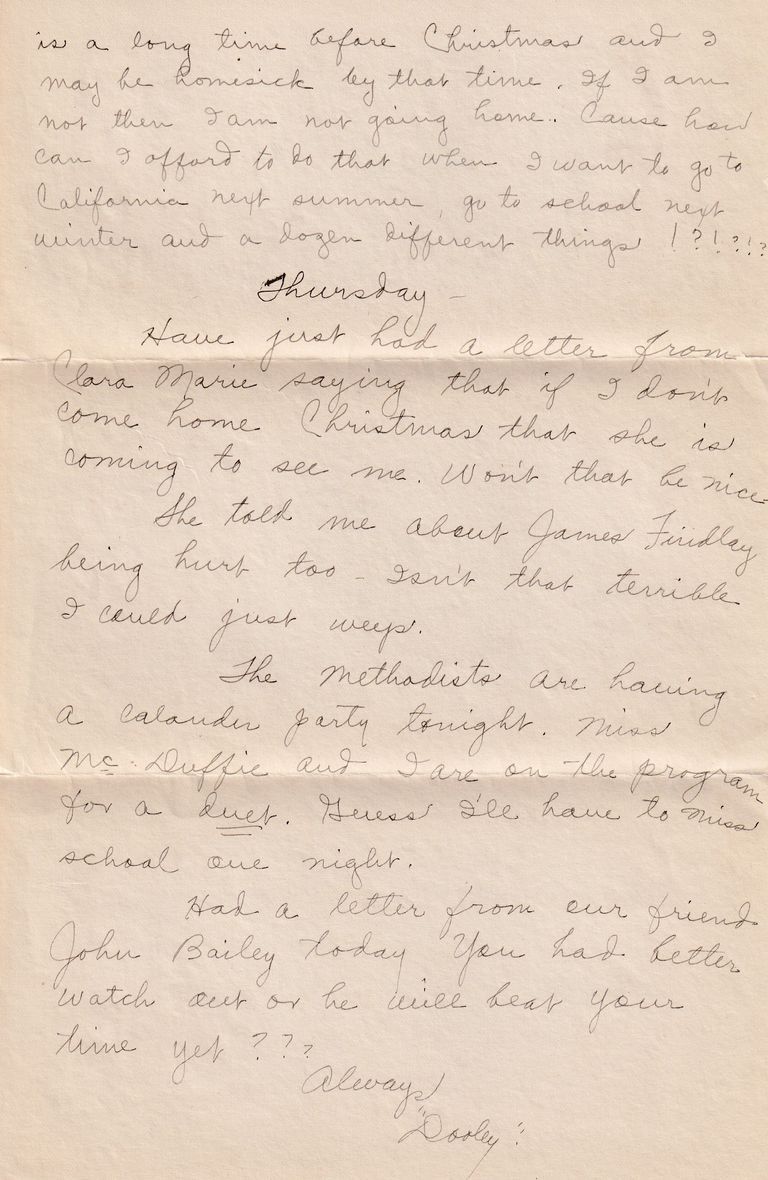 is a long time before Christmas and I
may be homesick by that time. If I am
not then I am not going home.. Cause how
can I afford to do that when I want to go to
California next summer, go to school next
winter and a dozen different things !?!?!?
Thursday -
Have just had a letter from
Clara Marie saying that if I don't
come home Christmas that she is
coming to see me. Won't that be nice
She told me about James Findlay
being hurt too - Isn't that terrible
I could just weep.
The Methodists are having
a calander party tonight. Miss
Mc Duffie and I are on the program
for a duet. Guess I'll have to miss
school one night.
Had a letter from our friend
John Bailey today You had better
watch out or he will beat your
time yet ???
Always
"Dooley".